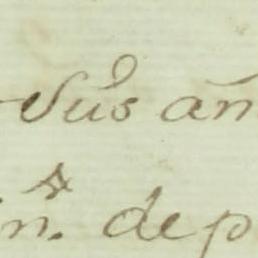 Sus an
n.ª dep